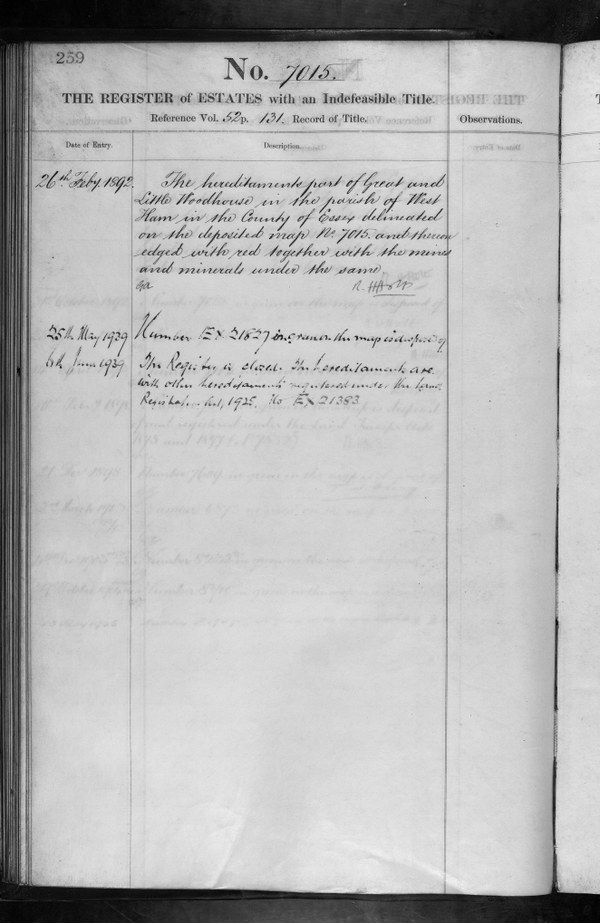 259
No. 7015.
THE REGISTER of ESTATES with an Indefeasible Title.
Reference Vol. 52 p. 131. Record of Title.
Observations.
Date of Entry.
Description.
26th Feby. 1892.
The hereditaments part of Great and
Little Woodhouse in the parish of West
Ham in the County of Essex delineated
on the deposited map No. 7015. and thereon
edged with red together with the mines
and minerals under the same
R. H. Holt
25th May 1939
Number EX 21627 in green on the map is disposed of
6th June 1939
The Registry is closed. The hereditaments are
with other hereditaments registered under the Land
Registration Act, 1925. No EX 21383